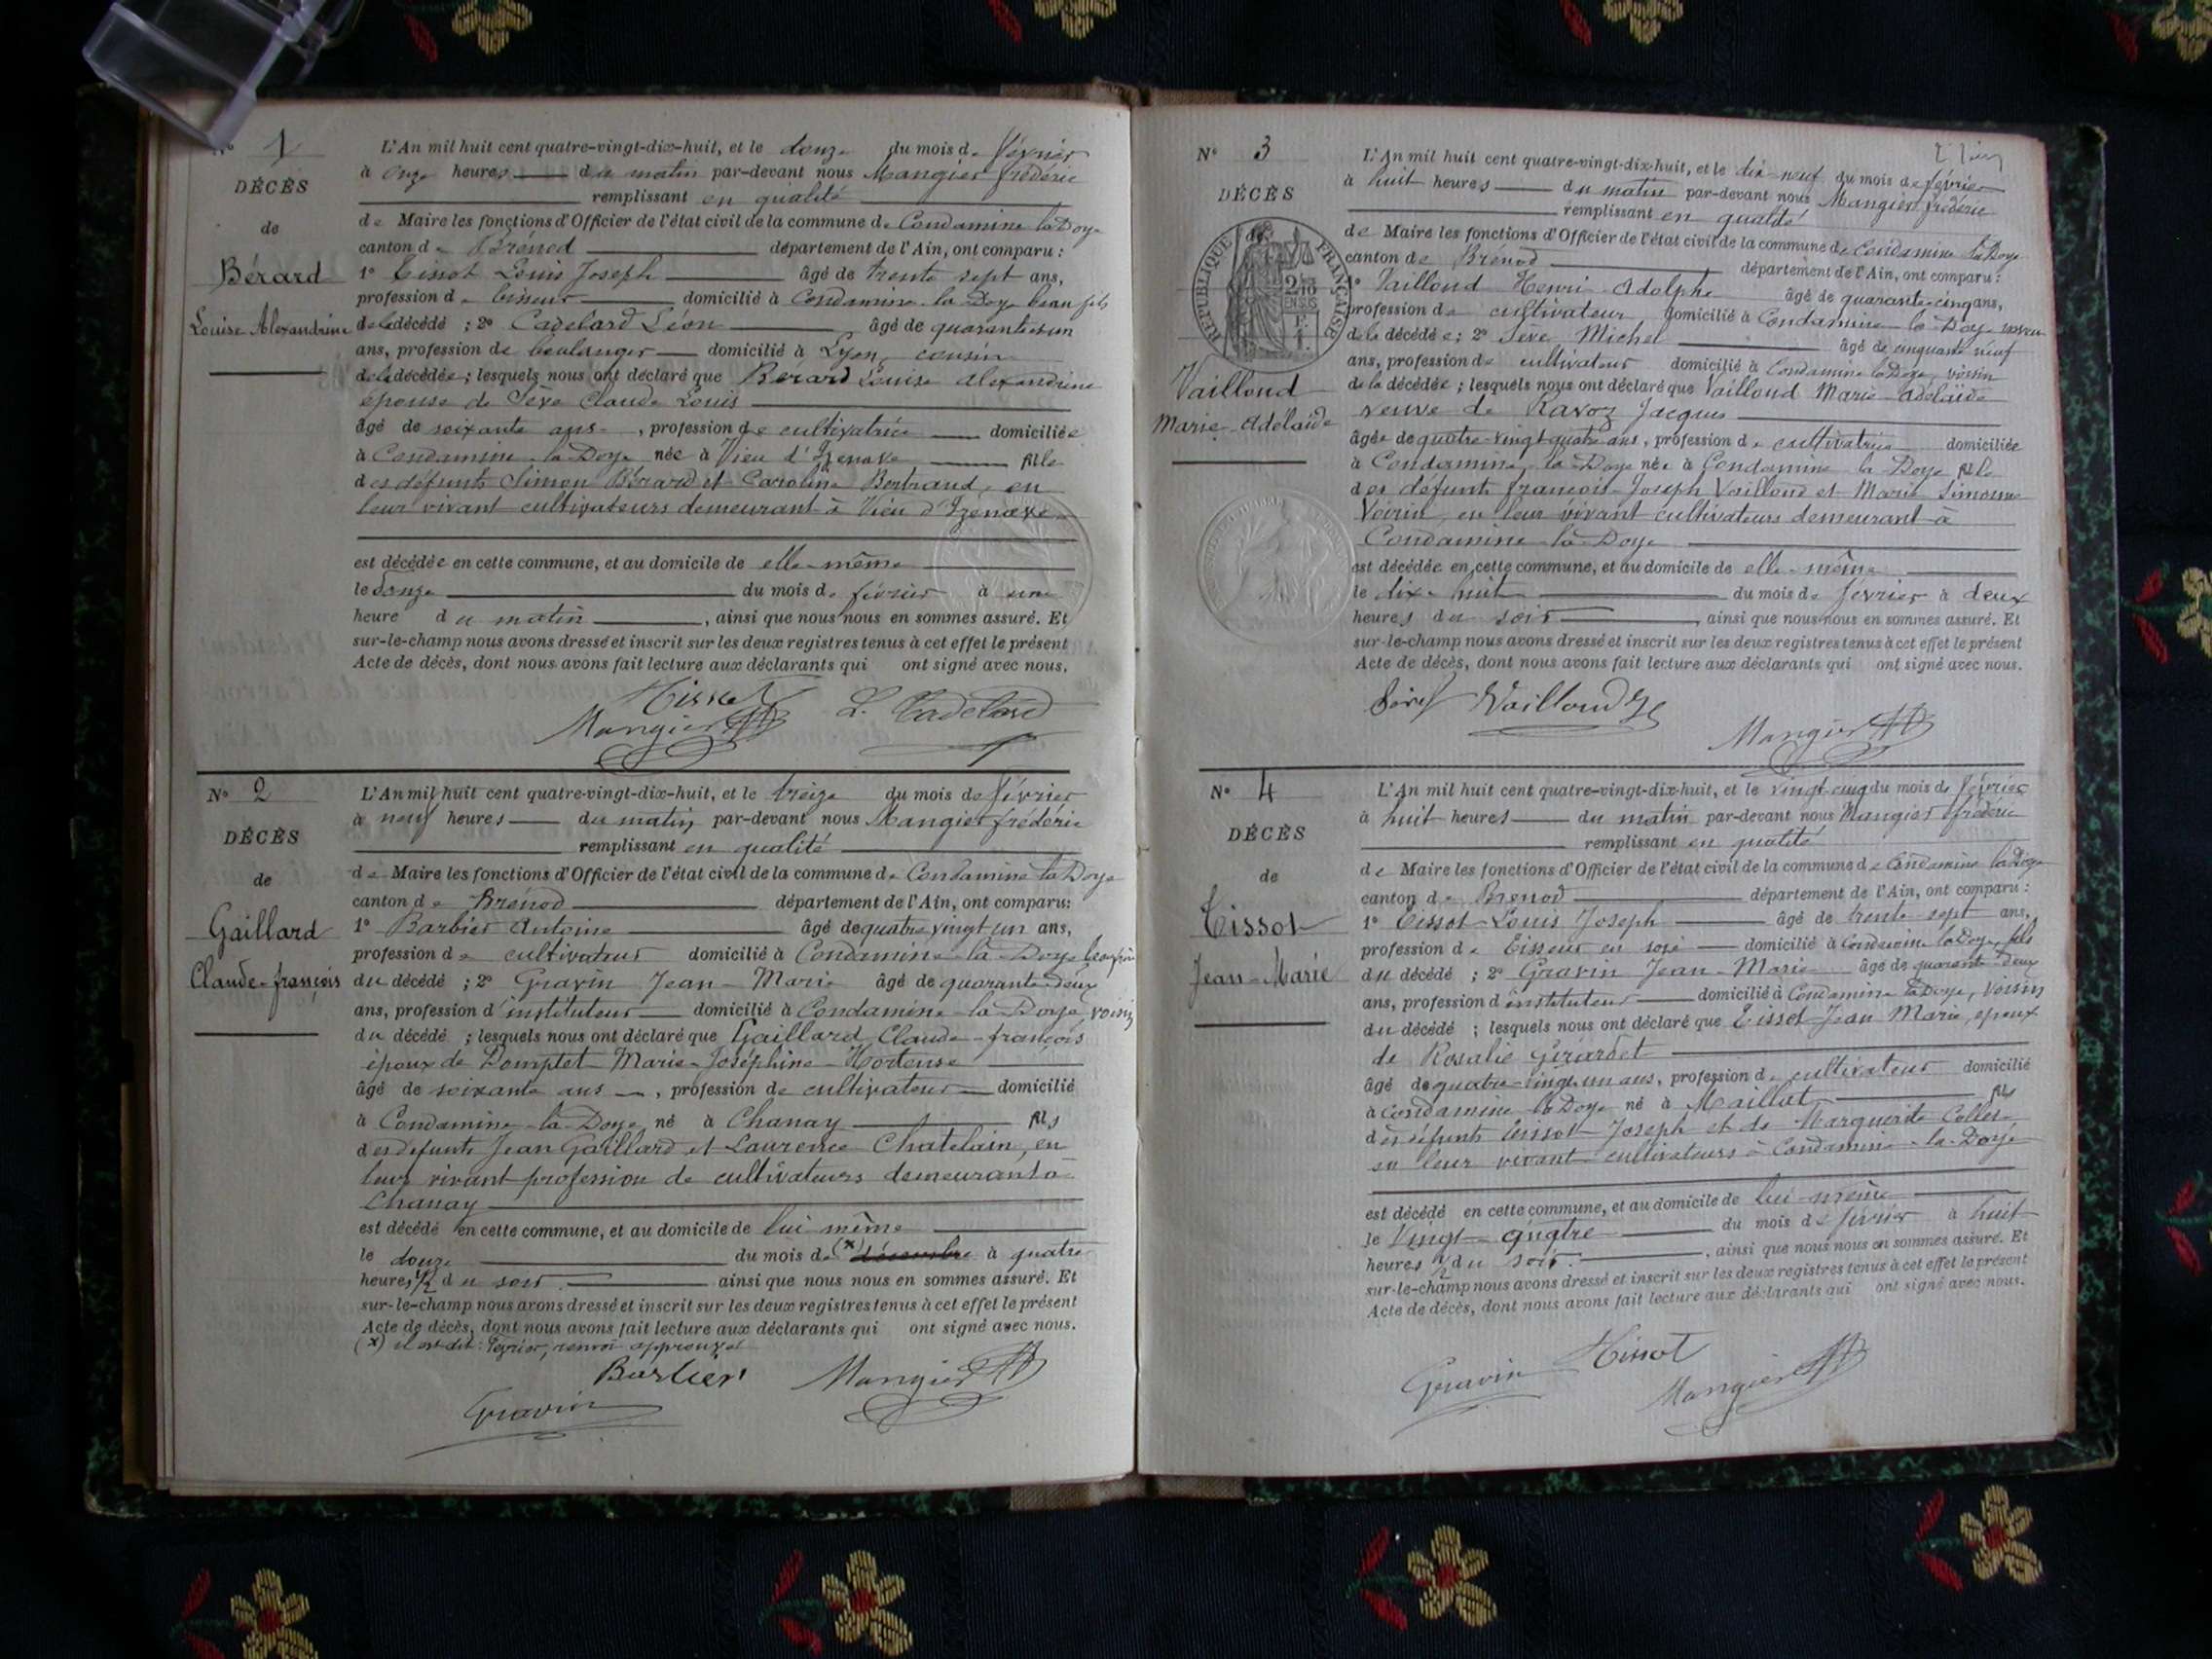 N° 1
DÉCÈS
de
Bérard
Louise Alexandrine
L'An mil huit cent quatre-vingt-dix-huit, et le douze du mois de février
à onze heures du matin par-devant nous Mangier frédéric
remplissant en qualité
de Maire les fonctions d'Officier de l'état civil de la commune de Condamine la Doye
canton de Brénod département de l'Ain, ont comparu :
1° Tissot Louis Joseph âgé de trente sept ans,
profession de tisseur domicilié à Condamine-la-Doye beau fils
de la décédé ; 2° Cadelard Léon âgé de quarante-un
ans, profession de boulanger domicilié à Lyon, cousin
de la décédée ; lesquels nous ont déclaré que Berard Louise Alexandrine
épouse de Sève Claude Louis
âgé de soixante ans, profession de cultivatrice domiciliée
à Condamine-la-Doye née à Vieu d'Izenave fille
des défunts Simon Bérard et Caroline Bertrand, en
leur vivant cultivateurs demeurant à Vieu d'Izenave
est décédée en cette commune, et au domicile de elle-même
le douze du mois de février à une
heure du matin, ainsi que nous nous en sommes assuré. Et
sur-le-champ nous avons dressé et inscrit sur les deux registres tenus à cet effet le présent
Acte de décès, dont nous avons fait lecture aux déclarants qui ont signé avec nous.
Tissot L. Cadelard
Mangier
N° 2
DÉCÈS
de
Gaillard
Claude-françois
L'An mil huit cent quatre-vingt-dix-huit, et le treize du mois de février
à neuf heures du matin par-devant nous Mangier frédéric
remplissant en qualité
de Maire les fonctions d'Officier de l'état civil de la commune de Condamine la Doye
canton de Brénod département de l'Ain, ont comparu :
1° Barbier Antoine âgé de quatre vingt un ans,
profession de cultivateur domicilié à Condamine-la-Doye
du décédé ; 2° Gravin Jean-Marie âgé de quarante-deux
ans, profession d'instituteur domicilié à Condamine-la-Doye, voisin
du décédé ; lesquels nous ont déclaré que Gaillard Claude-françois
époux de Domptet Marie-Joséphine-Hortense
âgé de soixante ans, profession de cultivateur domicilié
à Condamine-la-Doye né à Chanay fils
des défunts Jean Gaillard et Laurence Chatelain, en
leur vivant profession de cultivateurs demeurant à
Chanay
est décédé en cette commune, et au domicile de lui même
le douze du mois de (x) décembre à quatre
heures 1/2 du soir ainsi que nous nous en sommes assuré. Et
sur-le-champ nous avons dressé et inscrit sur les deux registres tenus à cet effet le présent
Acte de décès, dont nous avons fait lecture aux déclarants qui ont signé avec nous.
(x) il est dit : Février, renvoi approuvé
Barbier Mangier
Gravin
N° 3
DÉCÈS
de
RÉPUBLIQUE FRANÇAISE
Vailloud
Marie-Adélaïde
L'An mil huit cent quatre-vingt-dix-huit, et le dix-neuf du mois de février
à huit heures du matin par-devant nous Mangier frédéric
remplissant en qualité
de Maire les fonctions d'Officier de l'état civil de la commune de Condamine la Doye
canton de Brénod département de l'Ain, ont comparu :
1° Vailloud Henri-Adolphe âgé de quarante-cinq ans,
profession de cultivateur domicilié à Condamine-la-Doye neveu
de la décédée ; 2° Sève Michel âgé de cinquante neuf
ans, profession de cultivateur domicilié à Condamine la Doye, voisin
de la décédée ; lesquels nous ont déclaré que Vailloud Marie-Adélaïde
veuve de Ravoz Jacques
âgée de quatre-vingt quatre ans, profession de cultivatrice domiciliée
à Condamine la Doye née à Condamine la Doye fille
des défunts françois-Joseph Vailloud et Marie Simonne
Voirin, en leur vivant cultivateurs demeurant à
Condamine-la-Doye
est décédée en cette commune, et au domicile de elle-même
le dix-huit du mois de février à deux
heures du soir, ainsi que nous nous en sommes assuré. Et
sur-le-champ nous avons dressé et inscrit sur les deux registres tenus à cet effet le présent
Acte de décès, dont nous avons fait lecture aux déclarants qui ont signé avec nous.
Sève Vailloud
Mangier
N° 4
DÉCÈS
de
Tissot
Jean-Marie
L'An mil huit cent quatre-vingt-dix-huit, et le vingt-cinq du mois de février
à huit heures du matin par-devant nous Mangier frédéric
remplissant en qualité
de Maire les fonctions d'Officier de l'état civil de la commune de Condamine la Doye
canton de Brenod département de l'Ain, ont comparu :
1° Tissot-Louis Joseph âgé de trente sept ans,
profession de Tisseur en soie domicilié à Condamine la Doye, fils
du décédé ; 2° Gravin Jean-Marie âgé de quarante deux
ans, profession d'instituteur domicilié à Condamine la Doye, voisin
du décédé ; lesquels nous ont déclaré que Tissot Jean Marie, époux
de Rosalie Girardet
âgé de quatre-vingt-un ans, profession de cultivateur domicilié
à Condamine la Doye né à Maillat fils
des défunts Tissot Joseph et de Marguerite Collet
en leur vivant cultivateurs à Condamine-la-Doye
est décédé en cette commune, et au domicile de lui-même
le Vingt-quatre du mois de février à huit
heures 1/2 du soir, ainsi que nous nous en sommes assuré. Et
sur-le-champ nous avons dressé et inscrit sur les deux registres tenus à cet effet le présent
Acte de décès, dont nous avons fait lecture aux déclarants qui ont signé avec nous.
Gravin Tissot
Mangier